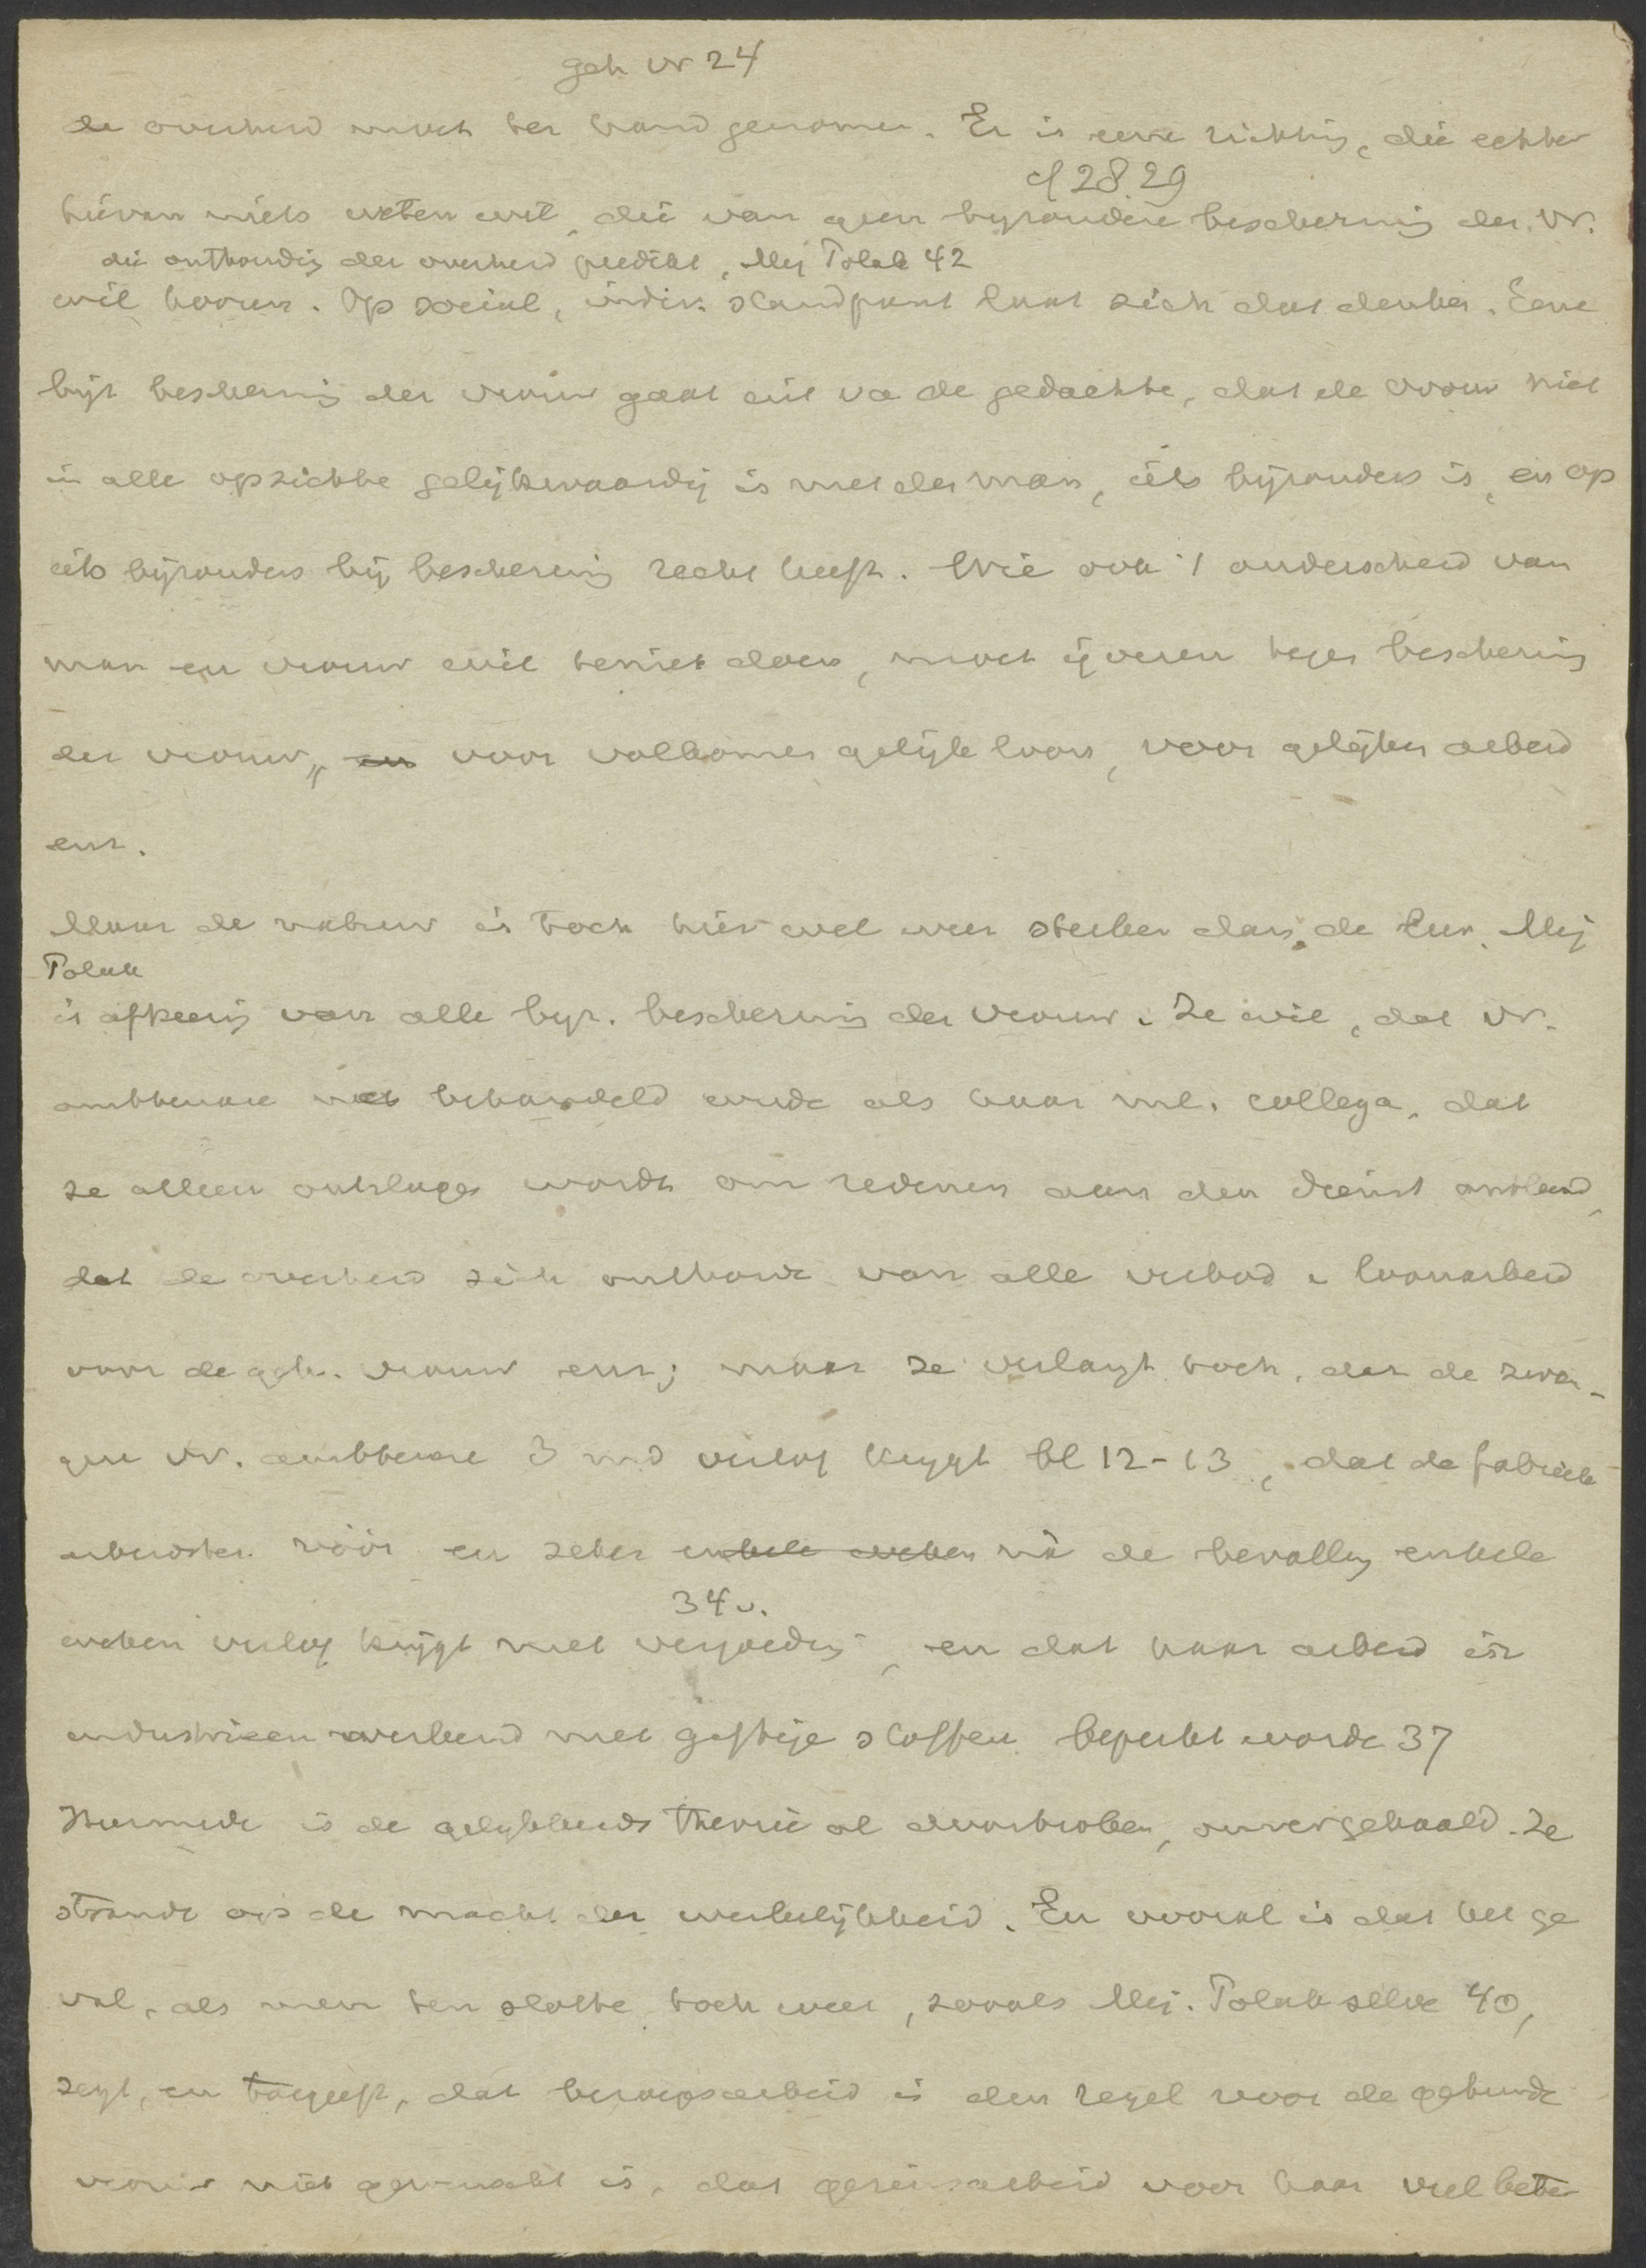 geh vr 24
de overheid moet ter hand genomen. Er is eene richting, die echter
cf 28.29
hiervan niets weten wil, die van geen byzondere bescherming der vr.
die onthouding der overheid predikt, Mej Polak 42
wil hooren. Op sociaal, indiv. standpunt laat zich dat denken. Eene
byz bescherming der vrouw gaat uit va de gedachte, dat de vrouw niet
in alle opzichte gelijkwaardig is met den man, iets bijzonders is, en op
iets bijzonders bij bescherming recht heeft. Wie ook 't onderscheid van
man en vrouw wil teniet doen, moet ijveren tegen bescherming
der vrouw, en voor volkomen gelijk loon, voor gelijken arbeid
enz.
Maar de natuur is toch hier wel weer sterker dan de leer. Mej
Polak
is afkeerig van alle byz. bescherming der vrouw. Ze wil, dat vr.
ambtenare net behandeld worde als haar ml. collega, dat
ze alleen ontslagen wordt om redenen aan den dienst ontleend,
dat de overheid zich onthoude van alle verbod v loonarbeid
voor de geh. vrouw enz; maar ze verlangt toch, dat de zwan-
gere vr. ambtenare 3 mnd verlof krygt bl 12-13, dat de fabrieks
arbeidster vóór en zeker enkele weken ná de bevalling enkele
34 v.
weken verlof krijgt met vergoeding, en dat haar arbeid in
industrieen werkend met giftige stoffen beperkt worde 37
Hiermede is de gelykheids theorie al doorbroken, omvergehaald. Ze
strandt op de macht der werkelijkheid. En vooral is dat het ge
val, als men ten slotte toch weer, zooals Mej. Polak zelve 40,
zegt, en toegeeft, dat beroepsarbeid in den regel voor de gehuwde
vrouw niet gewenscht is, dat gezinsarbeid voor haar veel beter